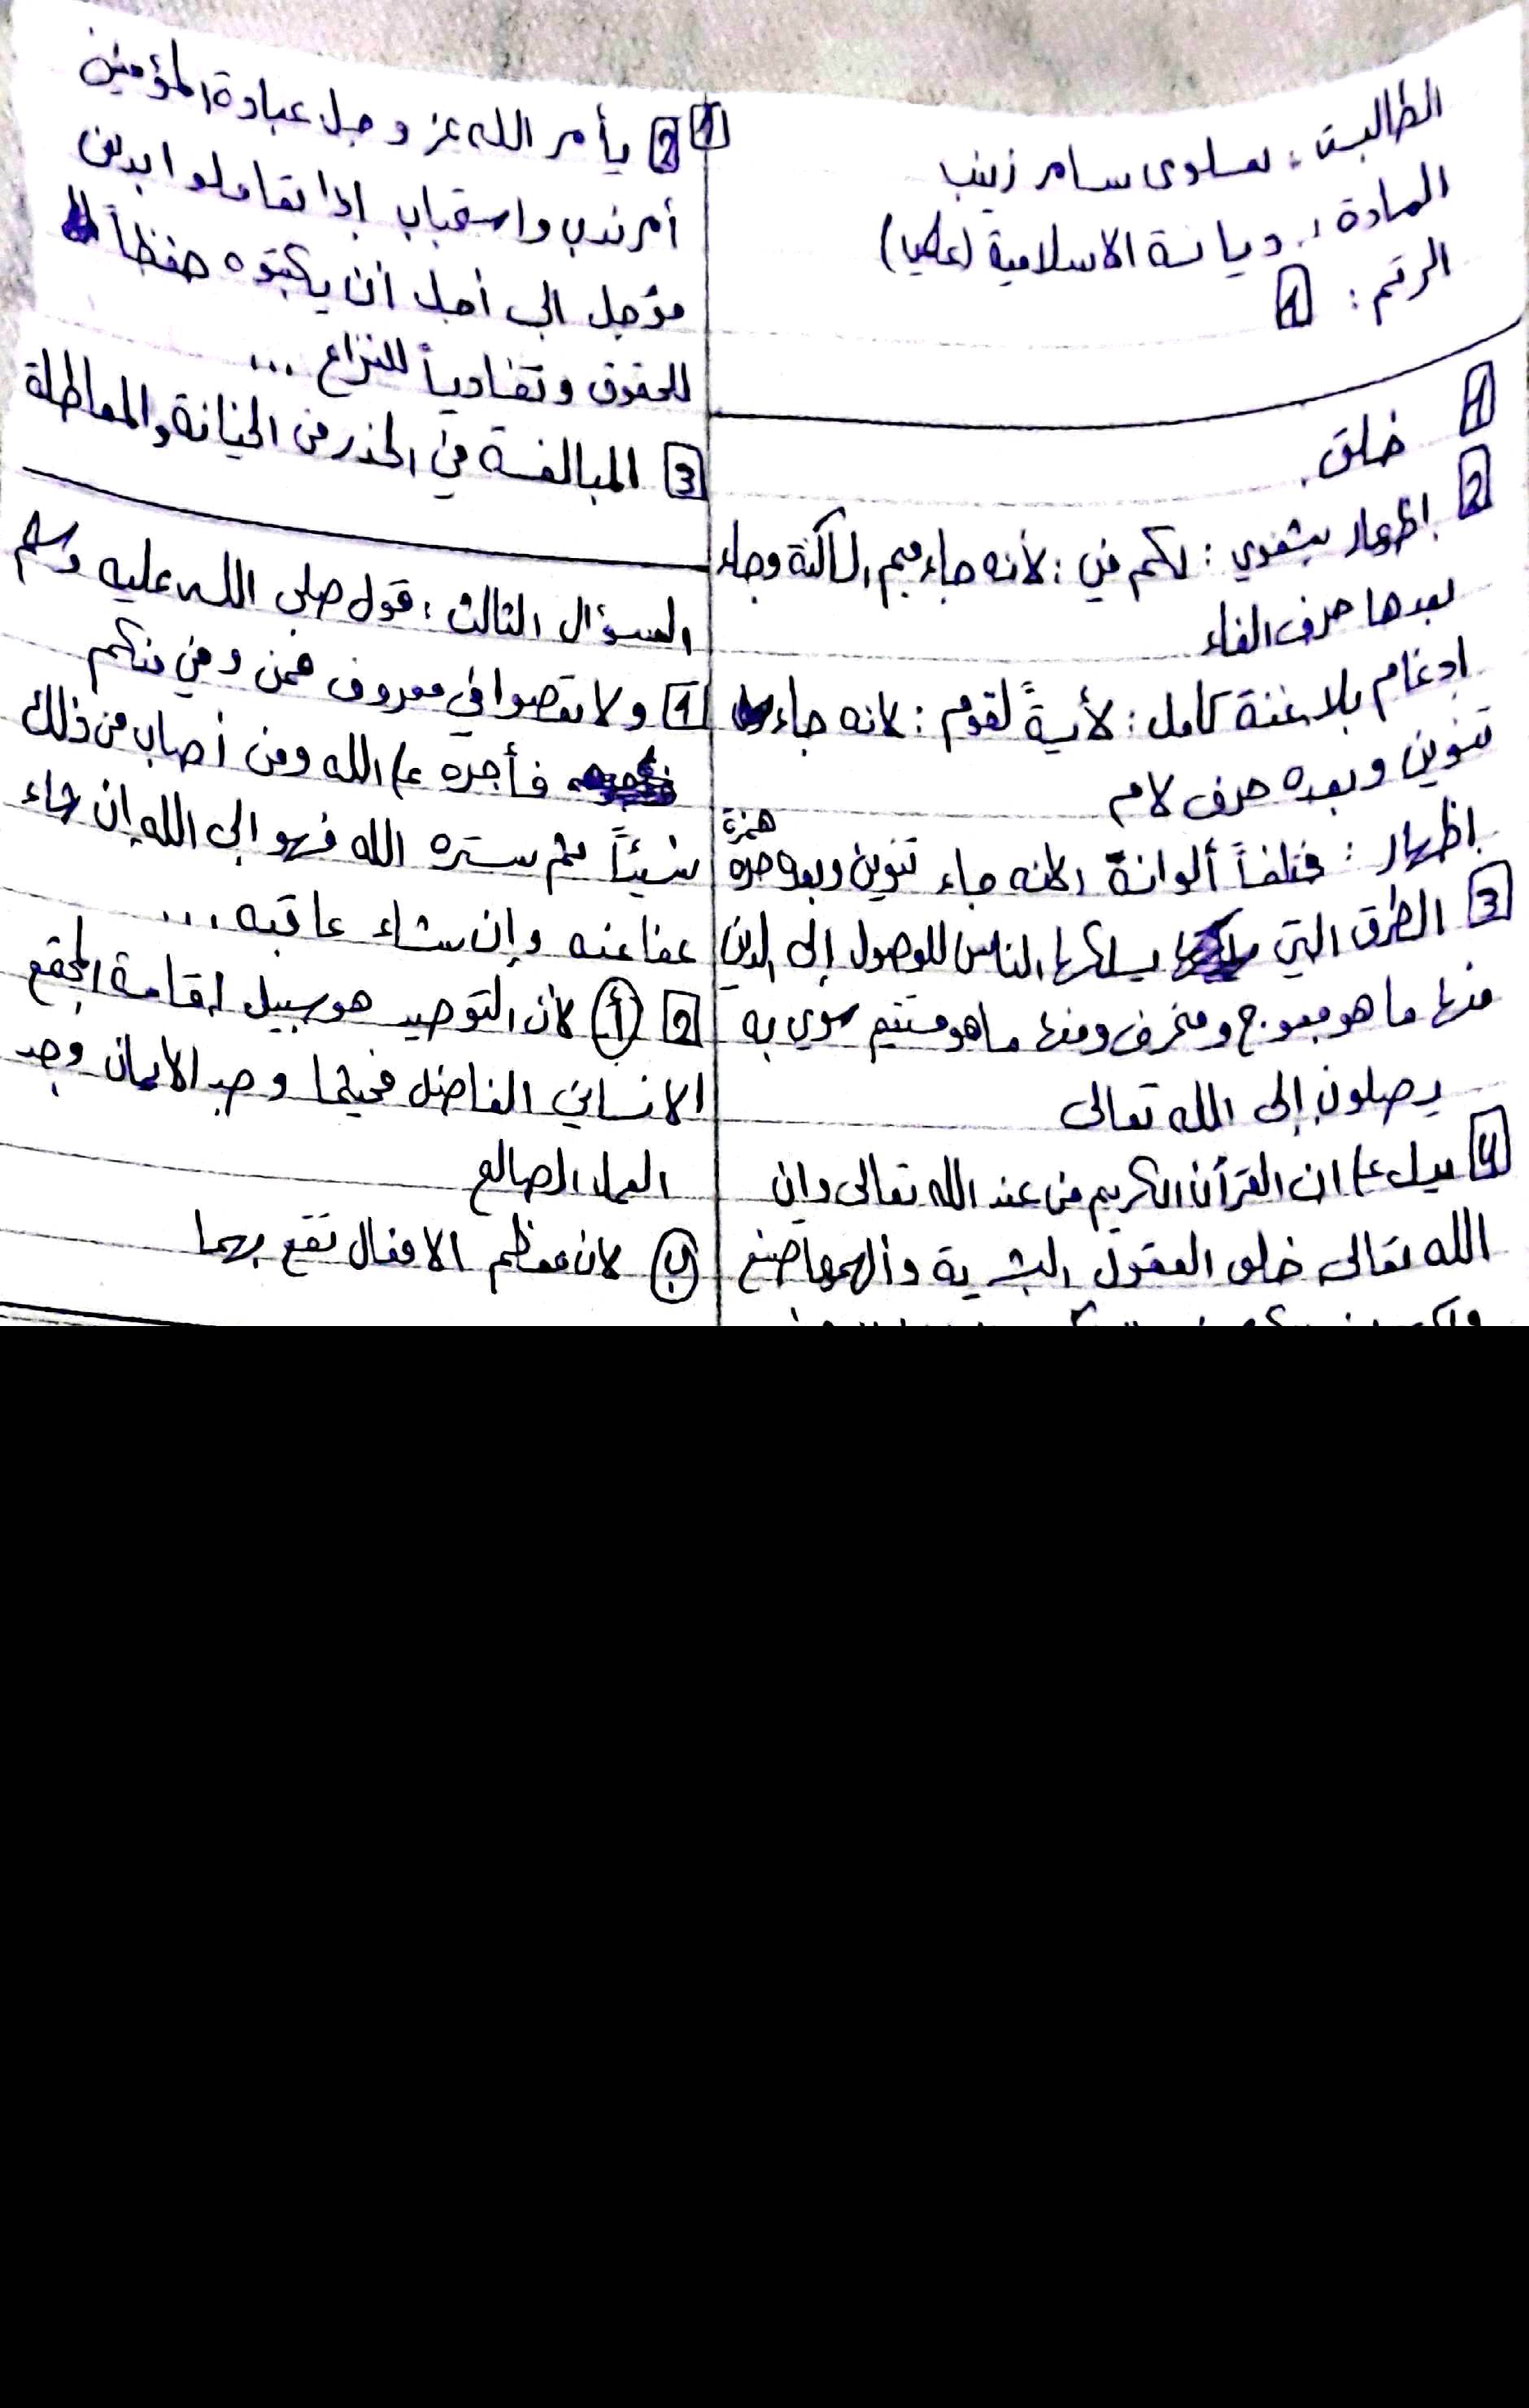 الطالبة : سلوى سامر زينب
المادة : ديانة الاسلامية (عليا)
الرقم : 1
1 خلق.
2 إظهار شفوي : لكم في : لأنه جاء ميم الساكنة وجاء
بعدها حرف الفاء
ادغام بلا غنة كامل : لأيةً لقوم : لانه جاء
تنوين وبعده حرف لام
إظهار : مختلفاً ألوانه لانه جاء تنوين وبعده حرف همزة
3 الطرق التي يسلكها الناس للوصول إلى الدين
منها ما هو معوج ومنحرف ومنها ما هو مستقيم سوي به
يصلون إلى الله تعالى
4 يدل على ان القرآن الكريم من عند الله تعالى وان
الله تعالى خلق العقول البشرية وألهمها صنع
1
2 يأمر الله عز وجل عبادة المؤمنين
أمر ندب واستحباب إذا تعاملوا بدين
مؤجل الى أجل أن يكتبوه حفظاً
للحقوق وتفادياً للنزاع ...
3 المبالغة في الحذر من الخيانة والمماطلة
السؤال الثالث : قول صلى الله عليه وسلم
1 ولا تعصوا في معروف فمن وفي منكم
فأجره على الله ومن أصاب من ذلك
شيئاً ثم ستره الله فهو إلى الله إن شاء
عفا عنه وإن شاء عاقبه ...
2 أ لأن التوحيد هو سبيل إقامة المجتمع
الانساني الفاضل فحيثما وجد الأيمان وجد
العمل الصالح
ب لان معظم الافعال تقع بهما